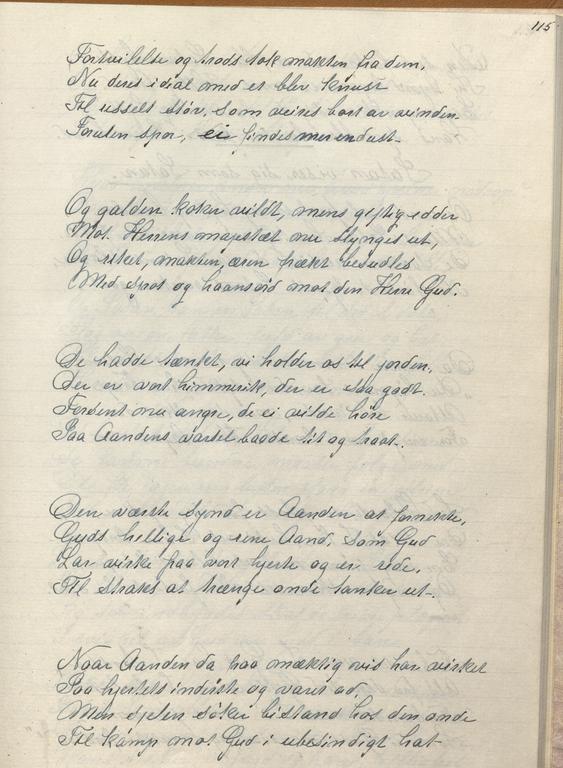 115
Fortvilelse og trods tok makten fra dem,
Nu deres ideal med et blev knust
Til usselt støv, som veires bort av vinden
Foruten spor, ei findes mer end ust.
Og galden koker vildt, mens giftig edder
Mot Herrens majestæt nu slynges ut,
Og riket, makten, æren frækt besudles
Med spot og haansord mot den Herre Gud.
De hadde tænkt, vi holder os til jorden,
Der er vort himmerik, der er saa godt.
Forsent nu angre, de ei vilde høre
Paa Aandens varsel baade tit og traat.
Den værste synd er Aanden at fornekte,
Guds hellige og rene Aand, som Gud
Lar virke paa vort hjerte og er rede,
Til straks at trænge onde tanker ut.
Naar Aanden da paa mæktig vis har virket
Paa hjertets inderste og varet ad,
Men sjelen søker bistand hos den onde
Til kamp mot Gud i ubesindigt hat